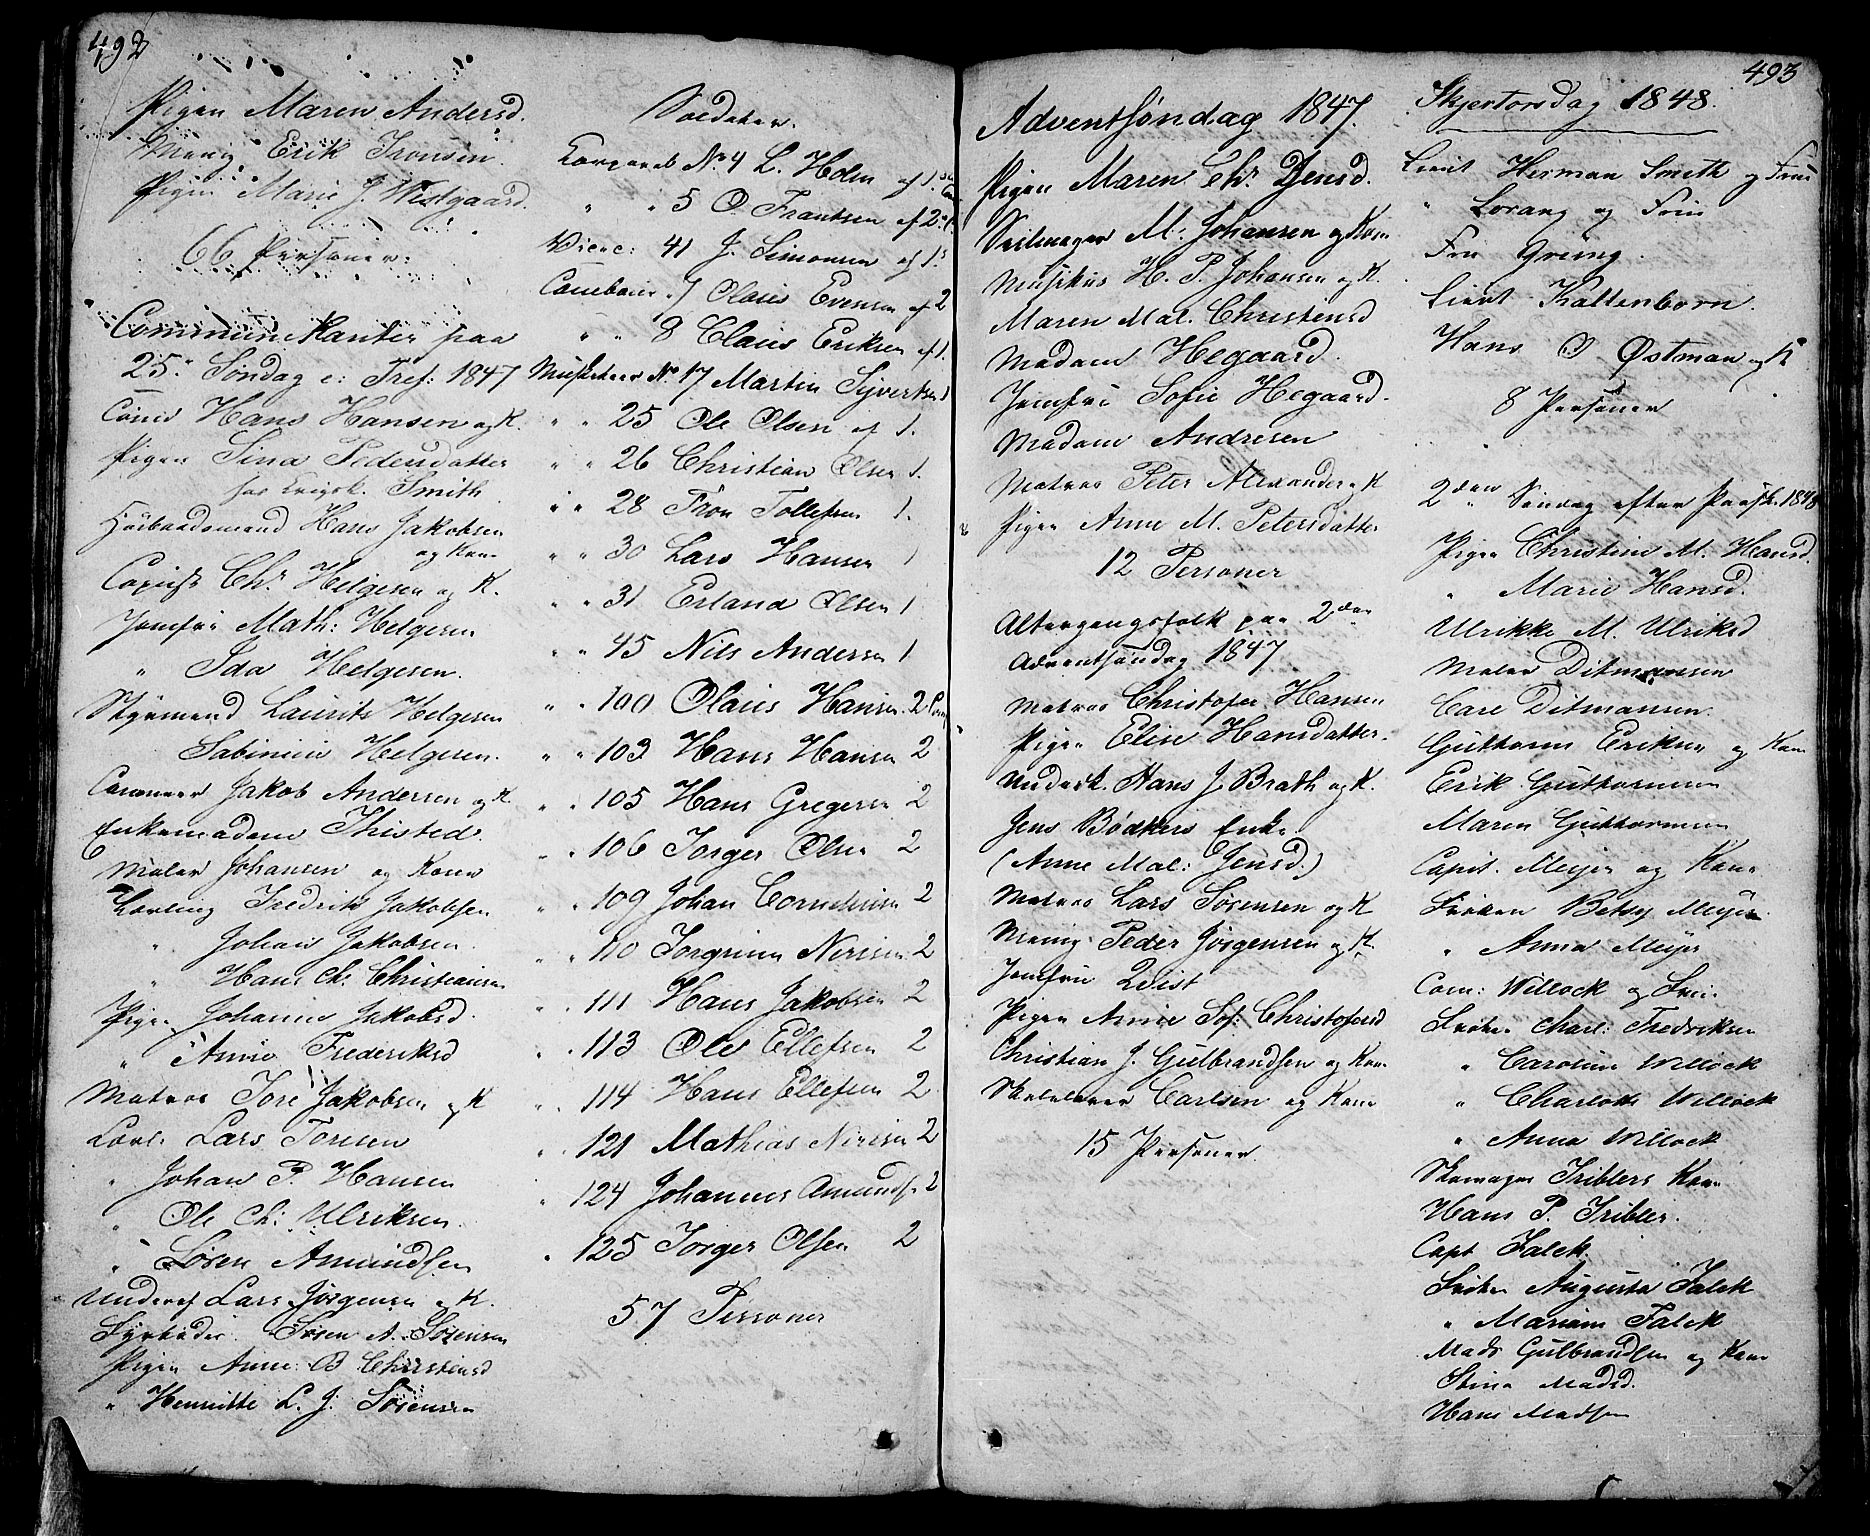 492
Pigen Maren Andersd.
Menig Erik Tronsen.
Pigen Marie J. Westgaard.
66 Personer.
Communikanter paa
25. Søndag e: Tref: 1847
Hans Hansen og K.
Pigen Sina Pedersdatter
hos Krigsk. Smith
Hans Jakobsen
og Kone
Copist Chr Helgesen og K.
Jomfru Math: Helgesen
" Ida Helgesen.
Styrmand Laurits Helgesen
Sabinius Helgesen.
Canoneer Jakob Andersen og K.
Enkemadam Thisted.
Maler Johansen og Kone
Lærling Fredrik Jakobsen
" Johan Jakobsen.
" Hans Ch. Christiansen
Pigen Johanne Jakobsd.
" Anne Frederiksd
Matros Tore Jakobsen og K
Lærl. Lars Toresen
" Johan P. Hansen
" Ole Ch: Ulriksen.
" Søren Amundsen
Underof Lars Jørgensen og K.
Fyrbøder Søren A. Sørensen
Pigen Anne B Christensd
" Henriette L. J. Sørensen
Soldater.
Corporal No. 4 L. Holm af 1.
" " 5 O. Frantsen af 2.
Vicec: 41 J. Simonsen af 1.
7 Olaus Evensen af 2
" " 8 Claus Eriksen af 1.
Musketeer No 17 Martin Syvertsen 1
" " 25 Ole Olsen af 1.
" " 26 Christian Olsen 1.
" " 28 Tron Tollefsen 1.
" " 30 Lars Hansen 1
" " 31 Erland Olsen 1
" " 45 Nils Andersen 1
" " 100 Olaus Hansen 2 Comp
" " 103 Hans Hansen 2
" " 105 Hans Gregersen 2
" " 106 Torger Olsen 2
" " 109 Johan Corneliusen 2
" " 110 Torgrim Nirisen 2
" " 111 Hans Jakobsen 2
" " 113 Ole Ellefsen 2
" " 114 Hans Ellefsen 2
" " 121 Mathias Nirisen 2
" 124 Johannes Amunds. 2
" 125 Torger Olsen 2
57 Personer
493
Adventsøndag 1847.
Pigen Maren Chr. Jensd.
Seilmager M. Johansen og Kone
Musikus H. P. Johansen og K.
Maren Mal. Christensd
Madam Hegaard.
Jomfru Sofie Hegaard.
Madam Andresen
Matros Peter Alexander og K
Pigen Anne M. Petersdatter
12 Personer
Altergangsfolk paa 2den
Adventsøndag 1847
Matros Christofer Hansen
Pigen Elise Hansdatter.
Undersk. Hans J. Brath og K.
Jens Bødkers Enke
(Anne Mal: Jensd.)
Matros Lars Sørensen og K
Menig Peder Jørgensen og K.
Jomfru Qvist
Pigen Anne Sof: Christofersd
Christian J. Gulbrandsen og Kone
Skolelærer Carlsen og Kone
15 Personer.
Skjertorsdag 1848.
Lieut Herman Smith og Frue
" Lorang og Frue
Fru Grüng.
Lieut Kaltenborn.
Hans O Østman og K
8 Personer
2den Søndag efter Paask. 1848
Pigen Christine M. Hansd.
" Marie Hansd.
Ulrikke M. Ulriksd
Maler Ditmansen
Carl Ditmansen.
Guttorm Eriksen og Kone
Erik Guttormsen
Maren Guttormsen
Capit. Meyer og Kone
Frøken Betsy Meyer.
" Anna Meyer
Com: Willock og Frue
Frøken Charl: Fredriksen
" Caroline Willock
" Charlotte Willock
" Anna Willock
Skomager Triblers Kone
Hans P. Tribler.
Capt Falck.
Frøken Augusta Falck
" Mariane Falck
Mads Gulbrandsen og Kone
Stine Madsd.
Hans Madsen